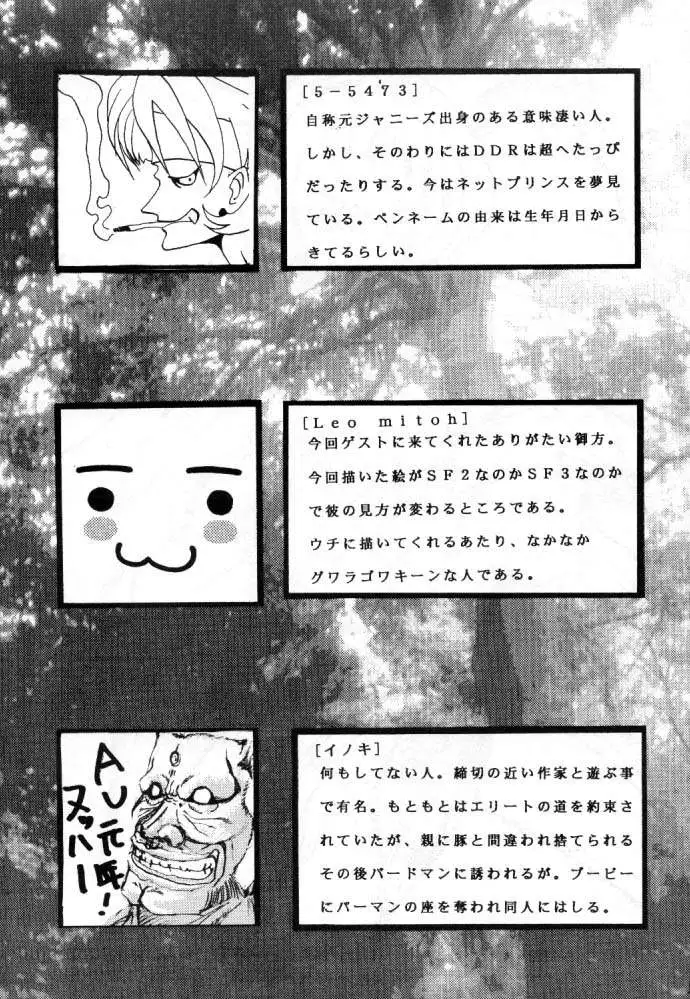 [5-5473]
自称元ジャニーズ出身のある意味凄い人。
しかし、そのわりにはDDRは超へたっぴ
だったりする。今はネットプリンスを夢見
ている。ペンネームの由来は生年月日から
きてるらしい。
[Leo mitoh]
今回ゲストに来てくれたありがたい御方。
今回描いた絵がSF2なのかSF3なのか
で彼の見方が変わるところである。
ウチに描いてくれるあたり、なかなか
グワラゴワキーンな人である。
AU元味!
ヌッハー
[イノキ]
何もしてない人。締切の近い作家と遊ぶ事
で有名。もともとはエリートの道を約束さ
れていたが、親に豚と間違われ捨てられる
その後バードマンに誘われるが。ブービー
にパーマンの座を奪われ同人にはしる。